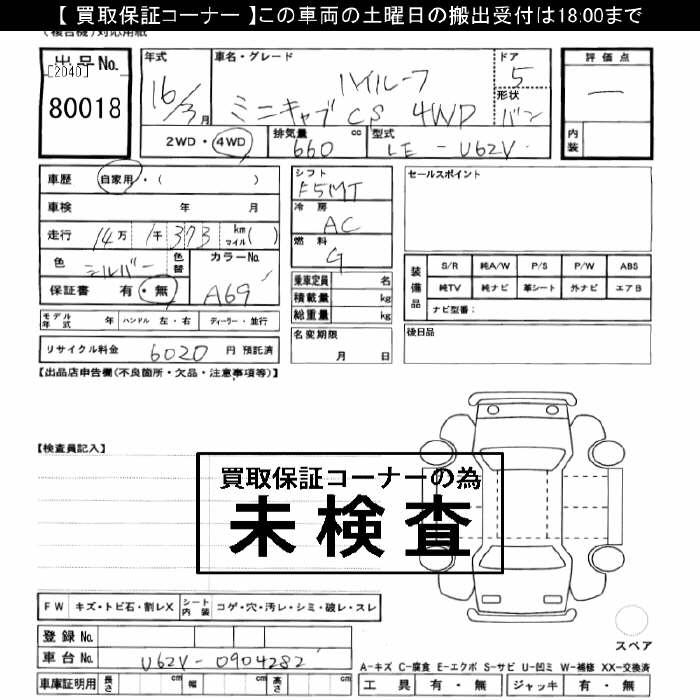 【 買取保証コーナー 】この車両の土曜日の搬出受付は18:00まで
(複合機)対応用紙
出品No.
[2040]
80018
年式 車名・グレード ドア
ハイルーフ 5
16/3月 ミニキャブ CS 4WD 形状 バン
2WD・4WD 排気量 660 cc 型式 LE-U62V
評価点
一
内装
車歴 自家用・( )
車検 年 月
走行 14万 1千 373 km マイル( )
色 シルバー 色替 カラーNo. A69
保証書 有・無
モデル年式 年 ハンドル 左・右 ディーラー・並行
リサイクル料金 6020 円 預託済
シフト F5MT
冷房 AC
燃料 G
乗車定員 名
積載量 kg
総重量 kg
名変期限
月 日
セールスポイント
装備品 S/R 純A/W P/S P/W ABS
純TV 純ナビ 革シート 外ナビ エアB
ナビ型番:
後日品
【出品店申告欄(不良箇所・欠品・注意事項等)】
【検査員記入】
買取保証コーナーの為
未検査
FW キズ・トビ石・割レX シート内装 コゲ・穴・汚レ・シミ・破レ・スレ
登録No.
車台No. U62V-0904282
車庫証明用 長さ cm 幅 cm 高さ cm
スペア
A-キズ C-腐食 E-エクボ S-サビ U-凹ミ W-補修 XX-交換済
工具 有・無 ジャッキ 有・無